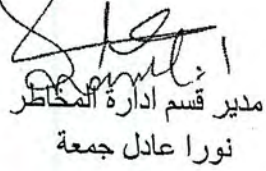 مدير قسم ادارة المخاطر
نورا عادل جمعة